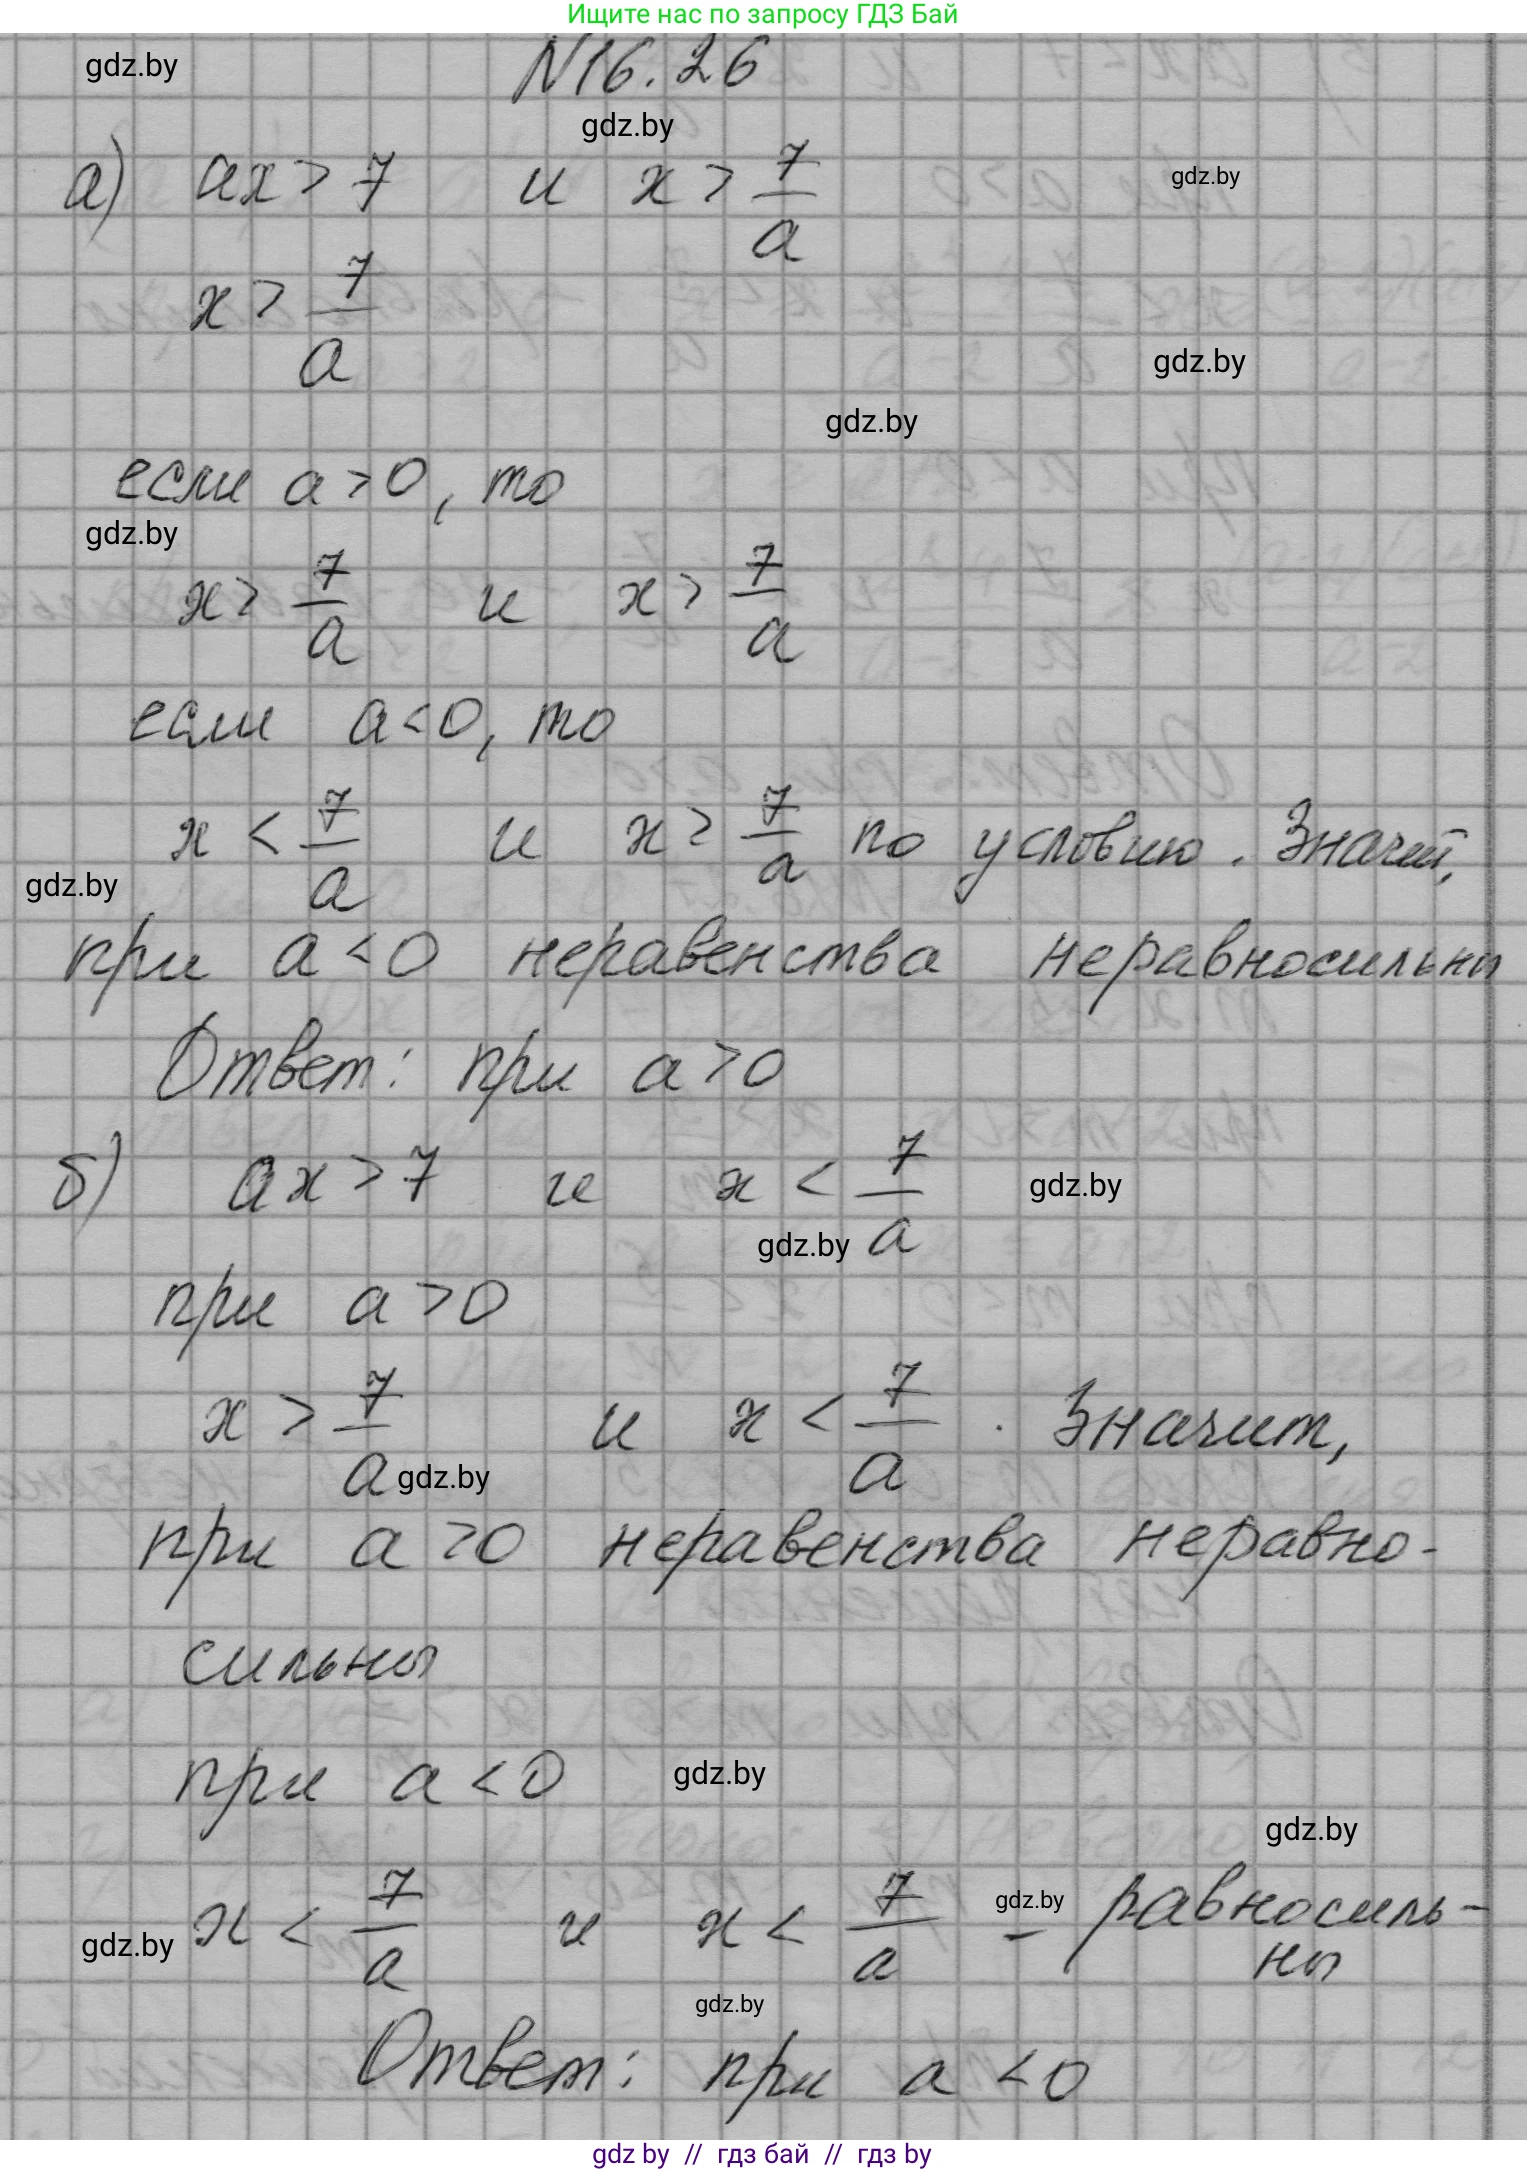 Ищите нас по запросу ГДЗ Бай
gdz.by
N16.26
gdz.by
а) ax > 7 и x > 7/a
gdz.by
x > 7/a
gdz.by
gdz.by
если a > 0, то
gdz.by
x > 7/a и x > 7/a
если a < 0, то
x < 7/a и x > 7/a по условию. Значит,
gdz.by
при a < 0 неравенства неравносильны
Ответ: при a > 0
б) ax > 7 и x < 7/a
gdz.by
gdz.by
при a > 0
x > 7/a и x < 7/a. Значит,
gdz.by
при a > 0 неравенства неравно-
сильны
при a < 0
gdz.by
gdz.by
x < 7/a и x < 7/a – равносиль-
ны
gdz.by
gdz.by
gdz.by
Ответ: при a < 0
gdz by // гдз бай // гдз by